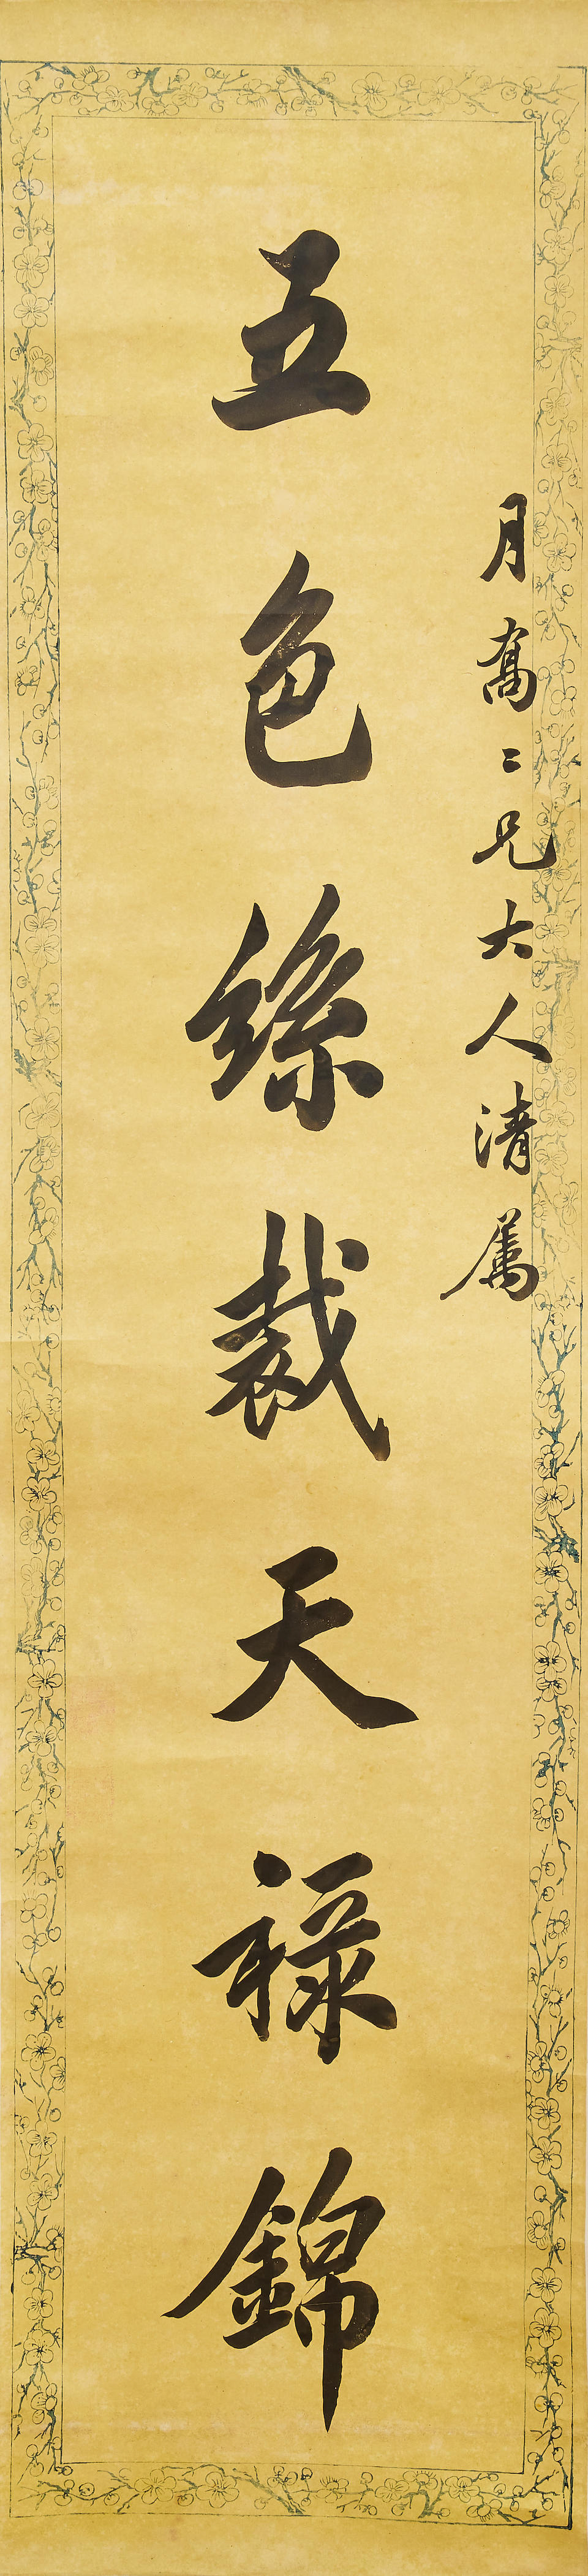 月喬二兄大人清屬
五色絲裁天祿錦